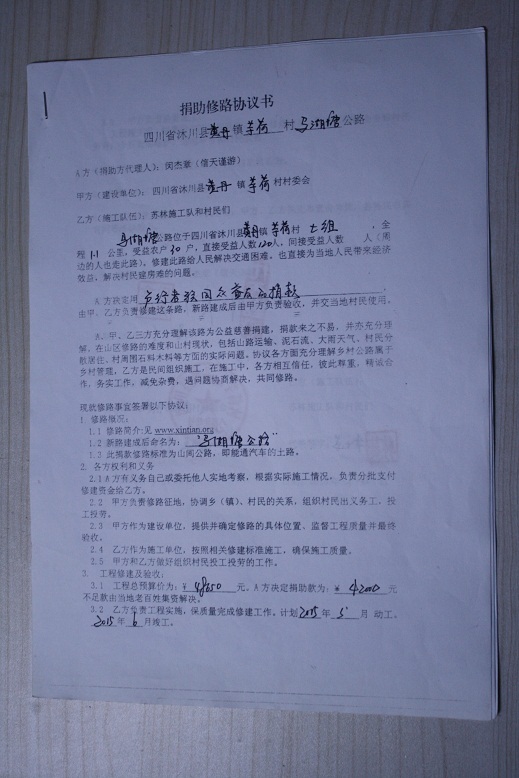 捐助修路协议书
四川省沐川县黄丹镇芋荷村马湖塘公路
A方（捐助方代理人）：闵杰章（信天谨游）
甲方（建设单位）：四川省沐川县黄丹镇芋荷村村委会
乙方（施工队伍）：苏林施工队和村民们
马湖塘公路位于四川省沐川县黄丹镇芋荷村七组，全
程1.1公里，受益农户30户，直接受益人数120人，间接受益人数 人（周
边的人也走此路）。修建此路给人民解决交通困难，也直接为当地人民带来经济
效益，解决村民建房难的问题。
A方决定用
由甲、乙方负责修建这条路，新路建成后由甲方负责验收，并交当地村民使用。
A、甲、乙三方充分理解该路为公益慈善捐建，捐款来之不易，并亦充分理
解，在山区修路的难度和山村现状，包括山路运输、泥石流、大雨天气、村民分
散居住、村周围石料木料等方面的实际问题，协议各方面充分理解乡村公路属于
乡村管理，乙方是民间组织施工，在施工中，各方相互信任，彼此尊重，精诚合
作，务实工作，减免杂费，遇问题协商解决，共同修路。
现就修路事宜签署以下协议：
1. 修路概况：
1.1 修路简介:见 www.xintian.org
1.2 新路建成后命名为：“马湖塘公路”
1.3 此捐款修路标准为山间公路，即能通汽车的土路。
2. 各方权利和义务
2.1 A方有义务自己或委托他人实地考察，根据实际施工情况，负责分批支付
修建资金给乙方。
2.2 甲方负责修路征地，协调乡（镇）、村民的关系，组织村民出义务工，投
工投劳。
2.3 甲方作为建设单位，提供并确定修路的具体位置、监督工程质量并最终
验收。
2.4 乙方作为施工单位，按照相关修建标准施工，确保施工质量。
2.5 甲方和乙方做好组织村民投工投劳的工作。
3. 工程修建及验收：
3.1 工程总预算价为：¥ 48650 元。A方决定捐助款为：¥ 42000 元
不足款由当地老百姓集资解决。
3.2 乙方负责工程实施，保质量完成修建工作。计划2015年5月 动工，
2015年6月竣工。